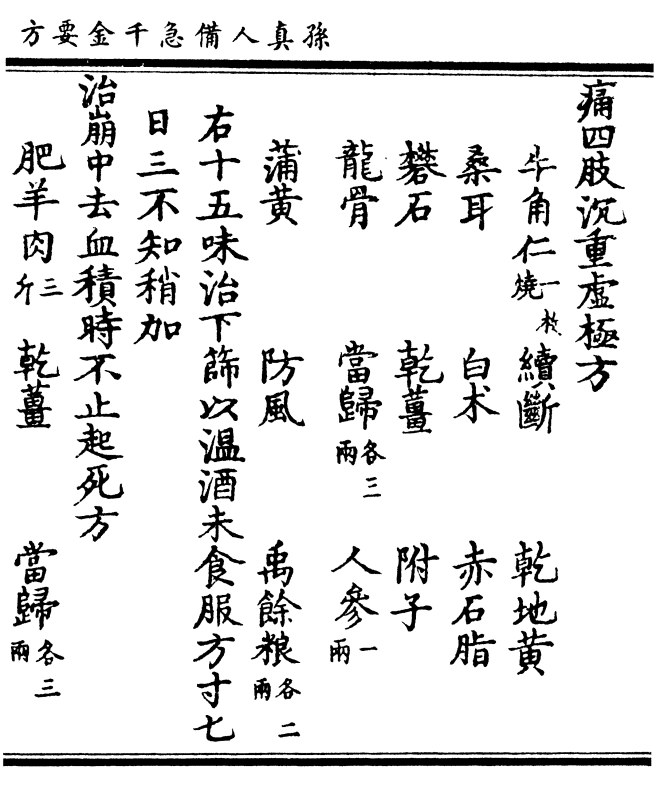 孫真人備急千金要方
痛四肢沉重虛極方
牛角仁一枚燒 續斷 乾地黃
桑耳 白术 赤石脂
礬石 乾薑 附子
龍骨 當歸各三兩 人參一兩
蒲黃 防風 禹餘粮各二兩
右十五味治下篩以温酒未食服方寸七
日三不知稍加
治崩中去血積時不止起死方
肥羊肉三斤 乾薑 當歸各三兩